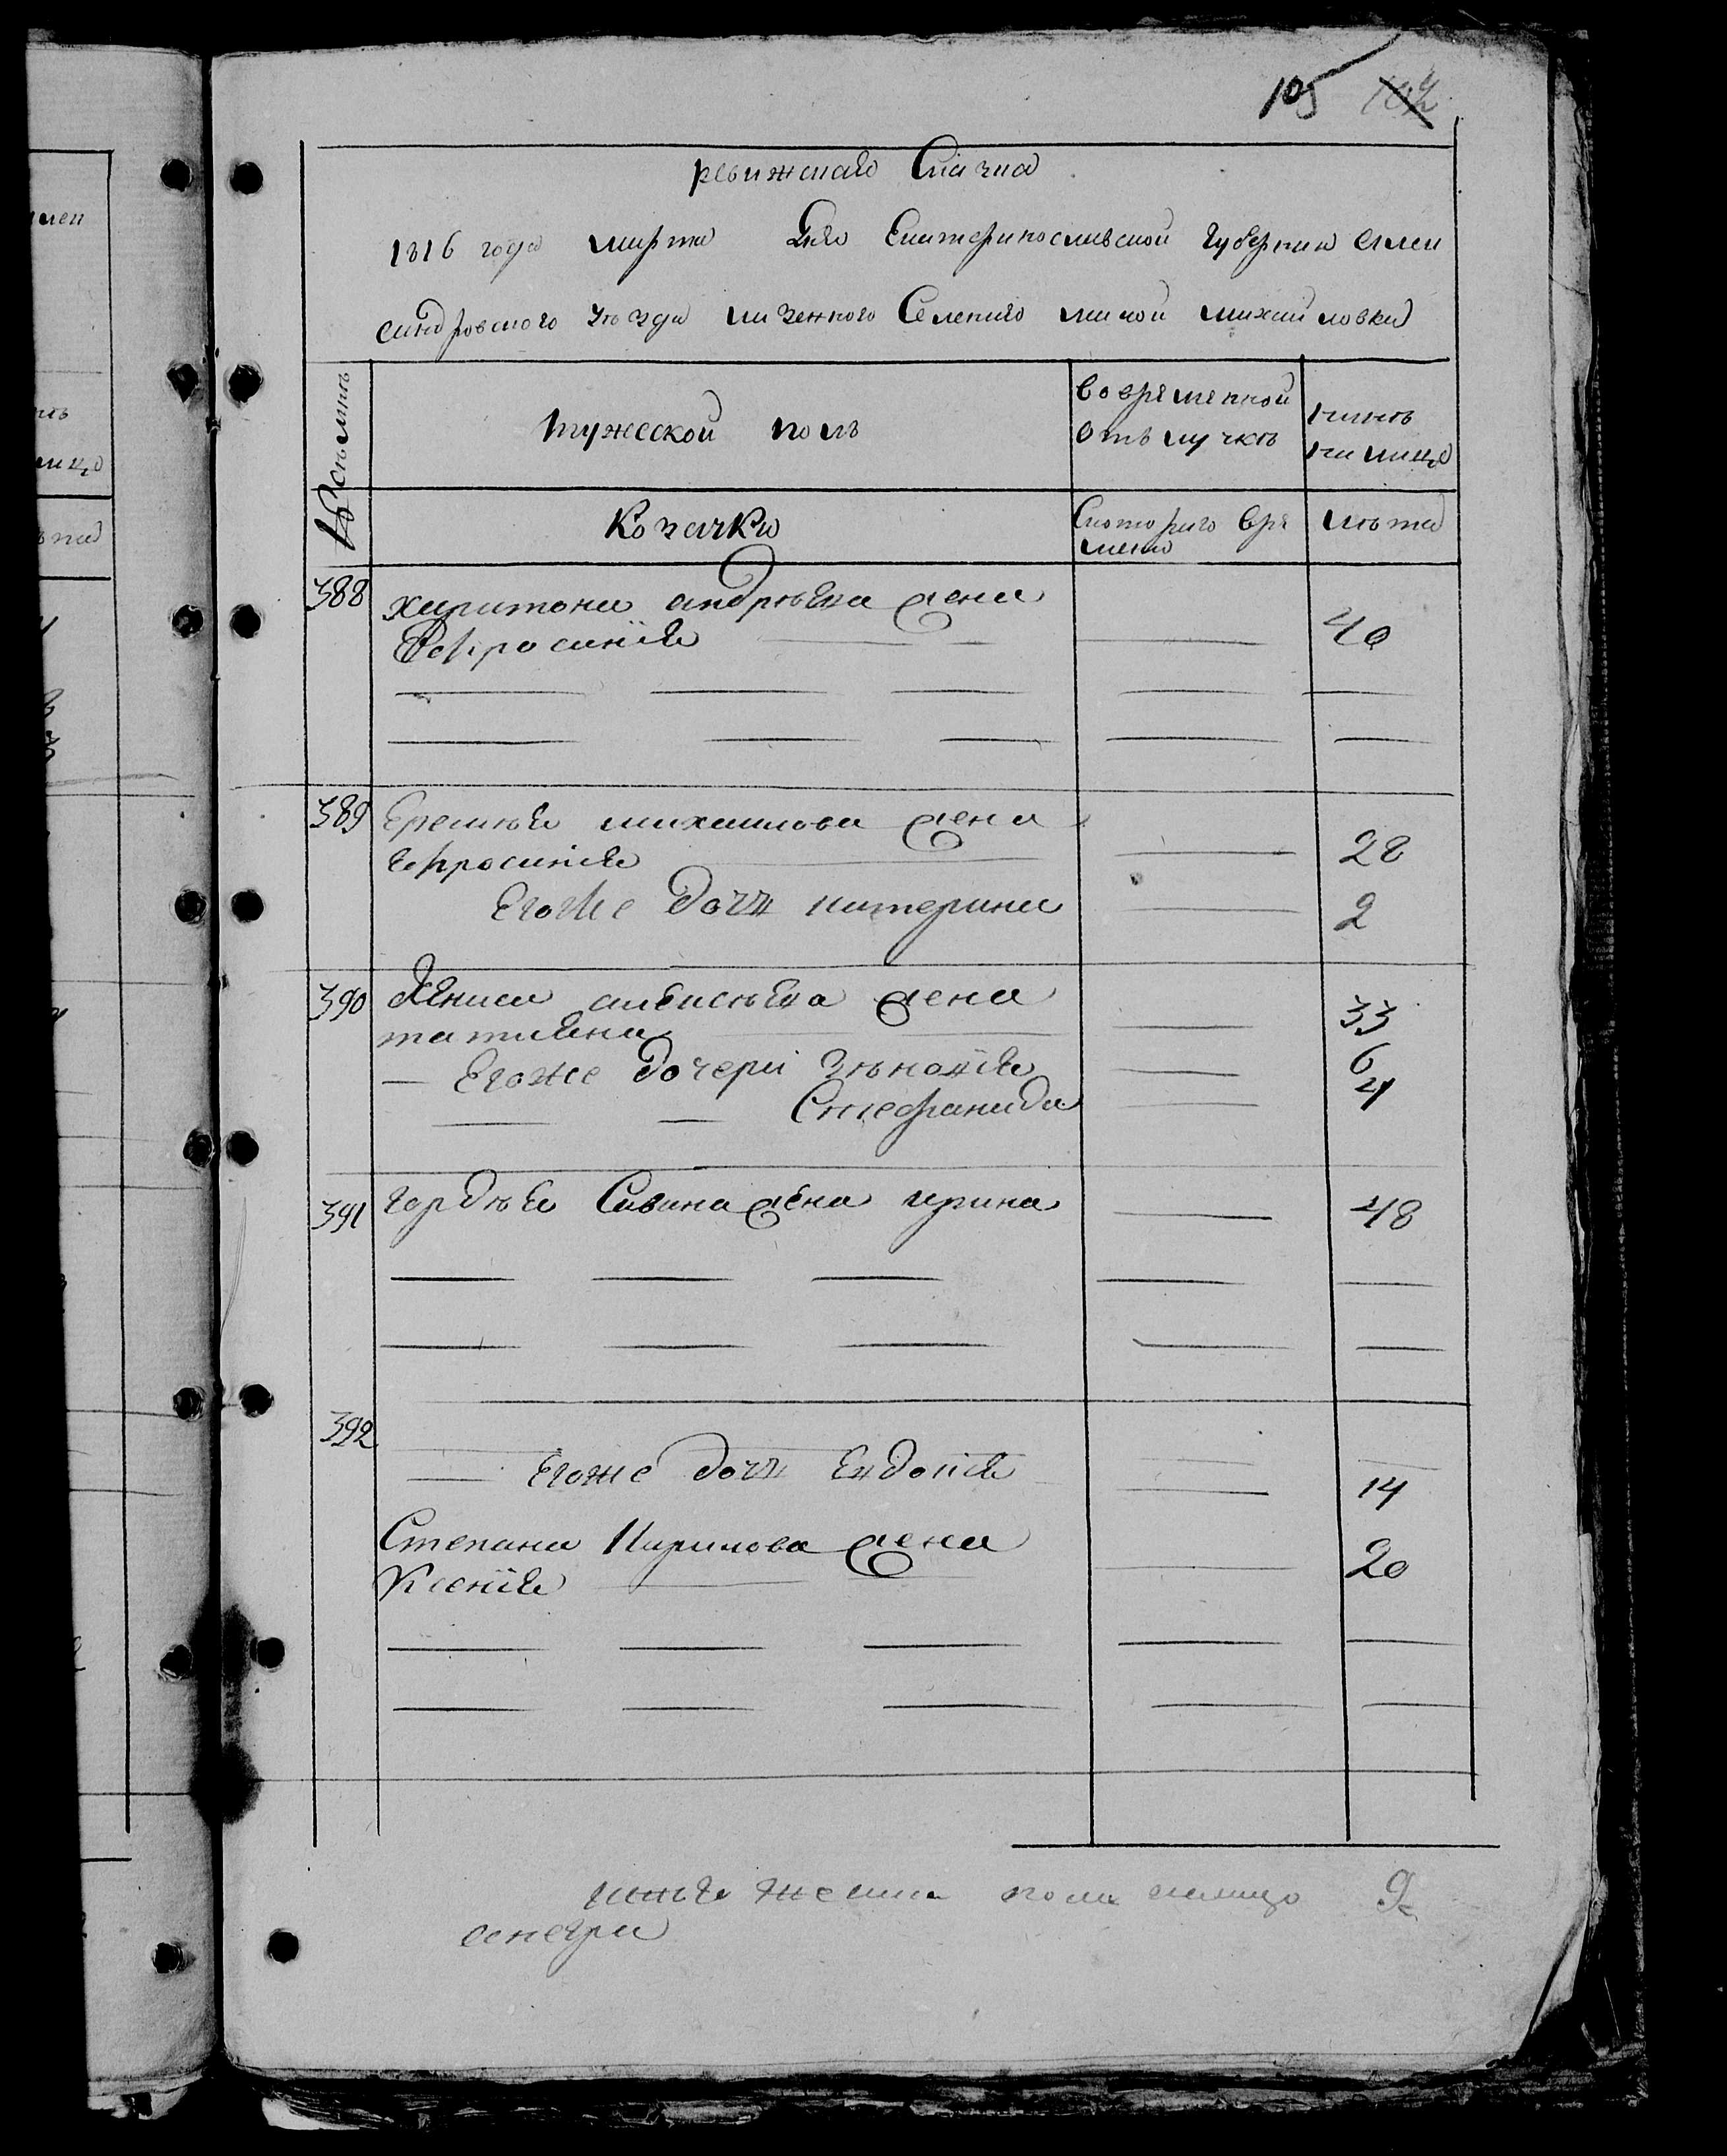 105 102
ревижская Скачка
1816 года марта Дня Екатеринославской губернии Алек
сандровского уѣзда казенного Селения малой михайловки
№ семьи
мужеской полъ
вовременной
отълучкѣ
нынѣ
на лицо
Козачки
Скотораго вре
мени
лѣта
388
харитона андрѣева жена
Ефросинія
40
389
Еремѣя михаилова жена
ефросинія
28
Егоже дочь катерина
2
390
Дениса алексѣева жена
татияна
33
— Егоже дочери Зѣновія
6
Стефанида
4
391
гордѣя Савина жена ирина
48
392
Егоже дочь Евдокия
14
Степана Кирилова жена
Ксенія
20
пола налицо 9